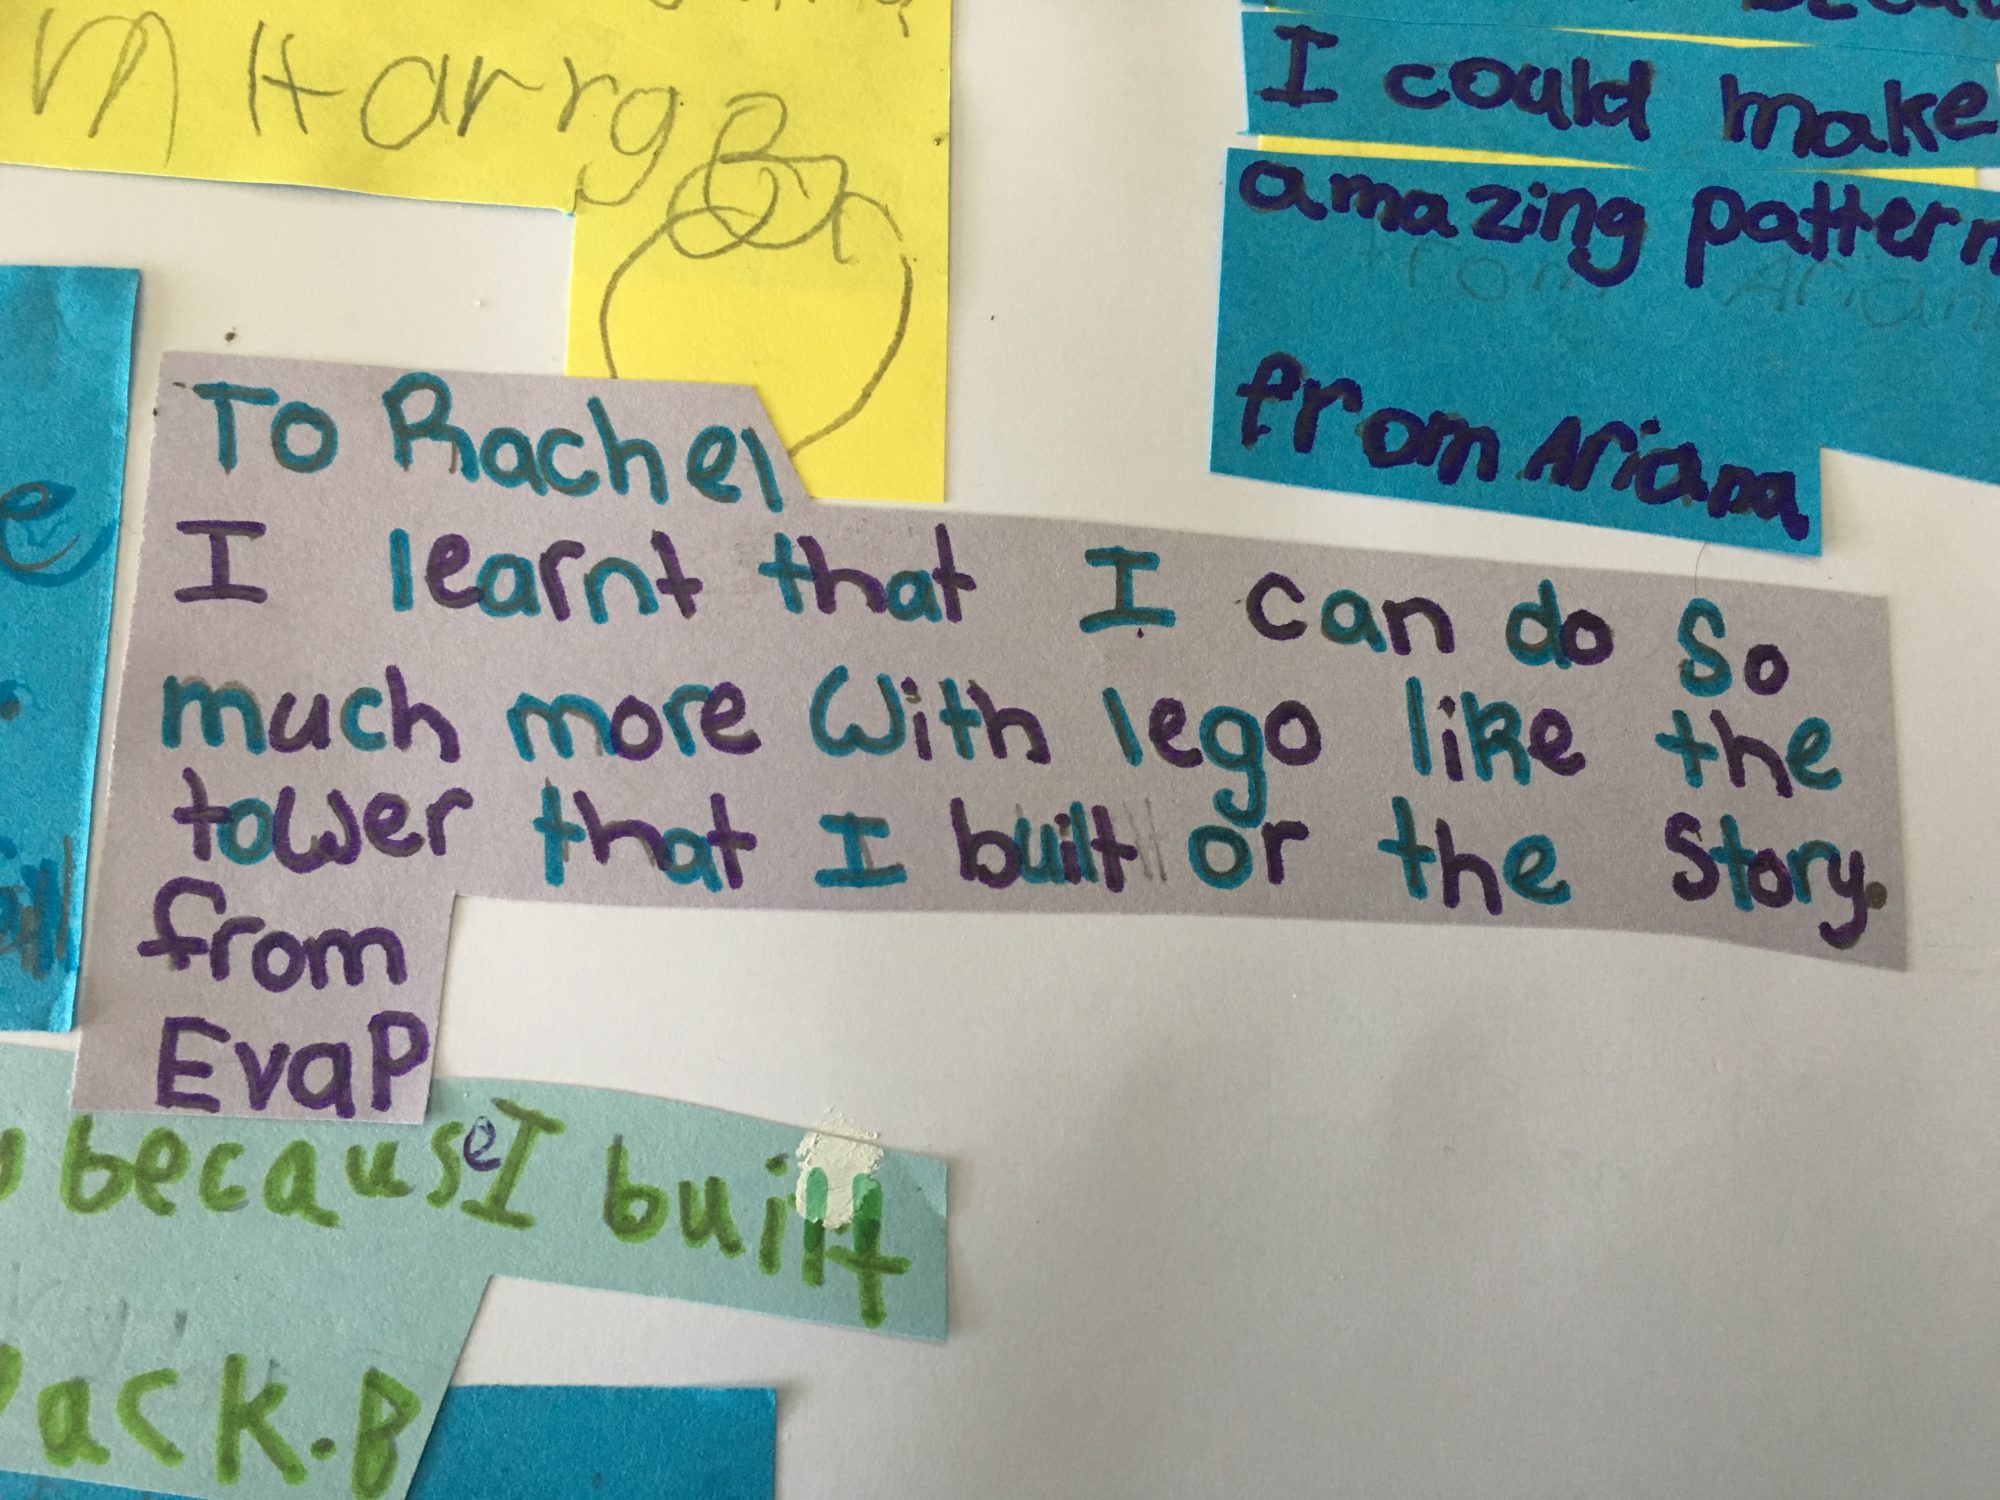 m Harry B
I could make
amazing pattern
from Arian
from Ariana
To Rachel
I learnt that I can do so
much more with lego like the
tower that I built or the story.
from
Eva P
because I built
ack.B